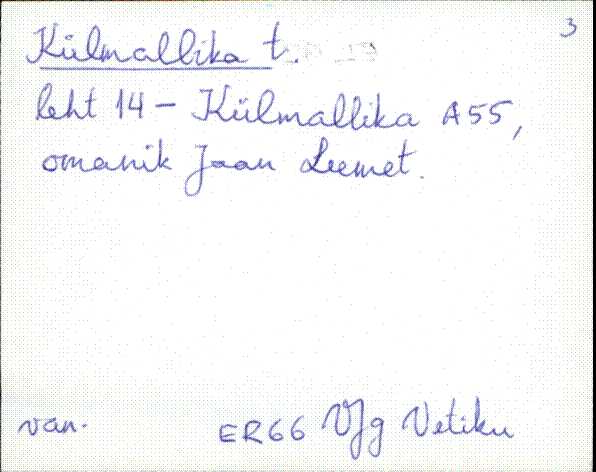 3
Külmallika t.
leht 14 - Külmallika A55,
omanik Jaan Leemet.
van. ER66 VJg Vetiku